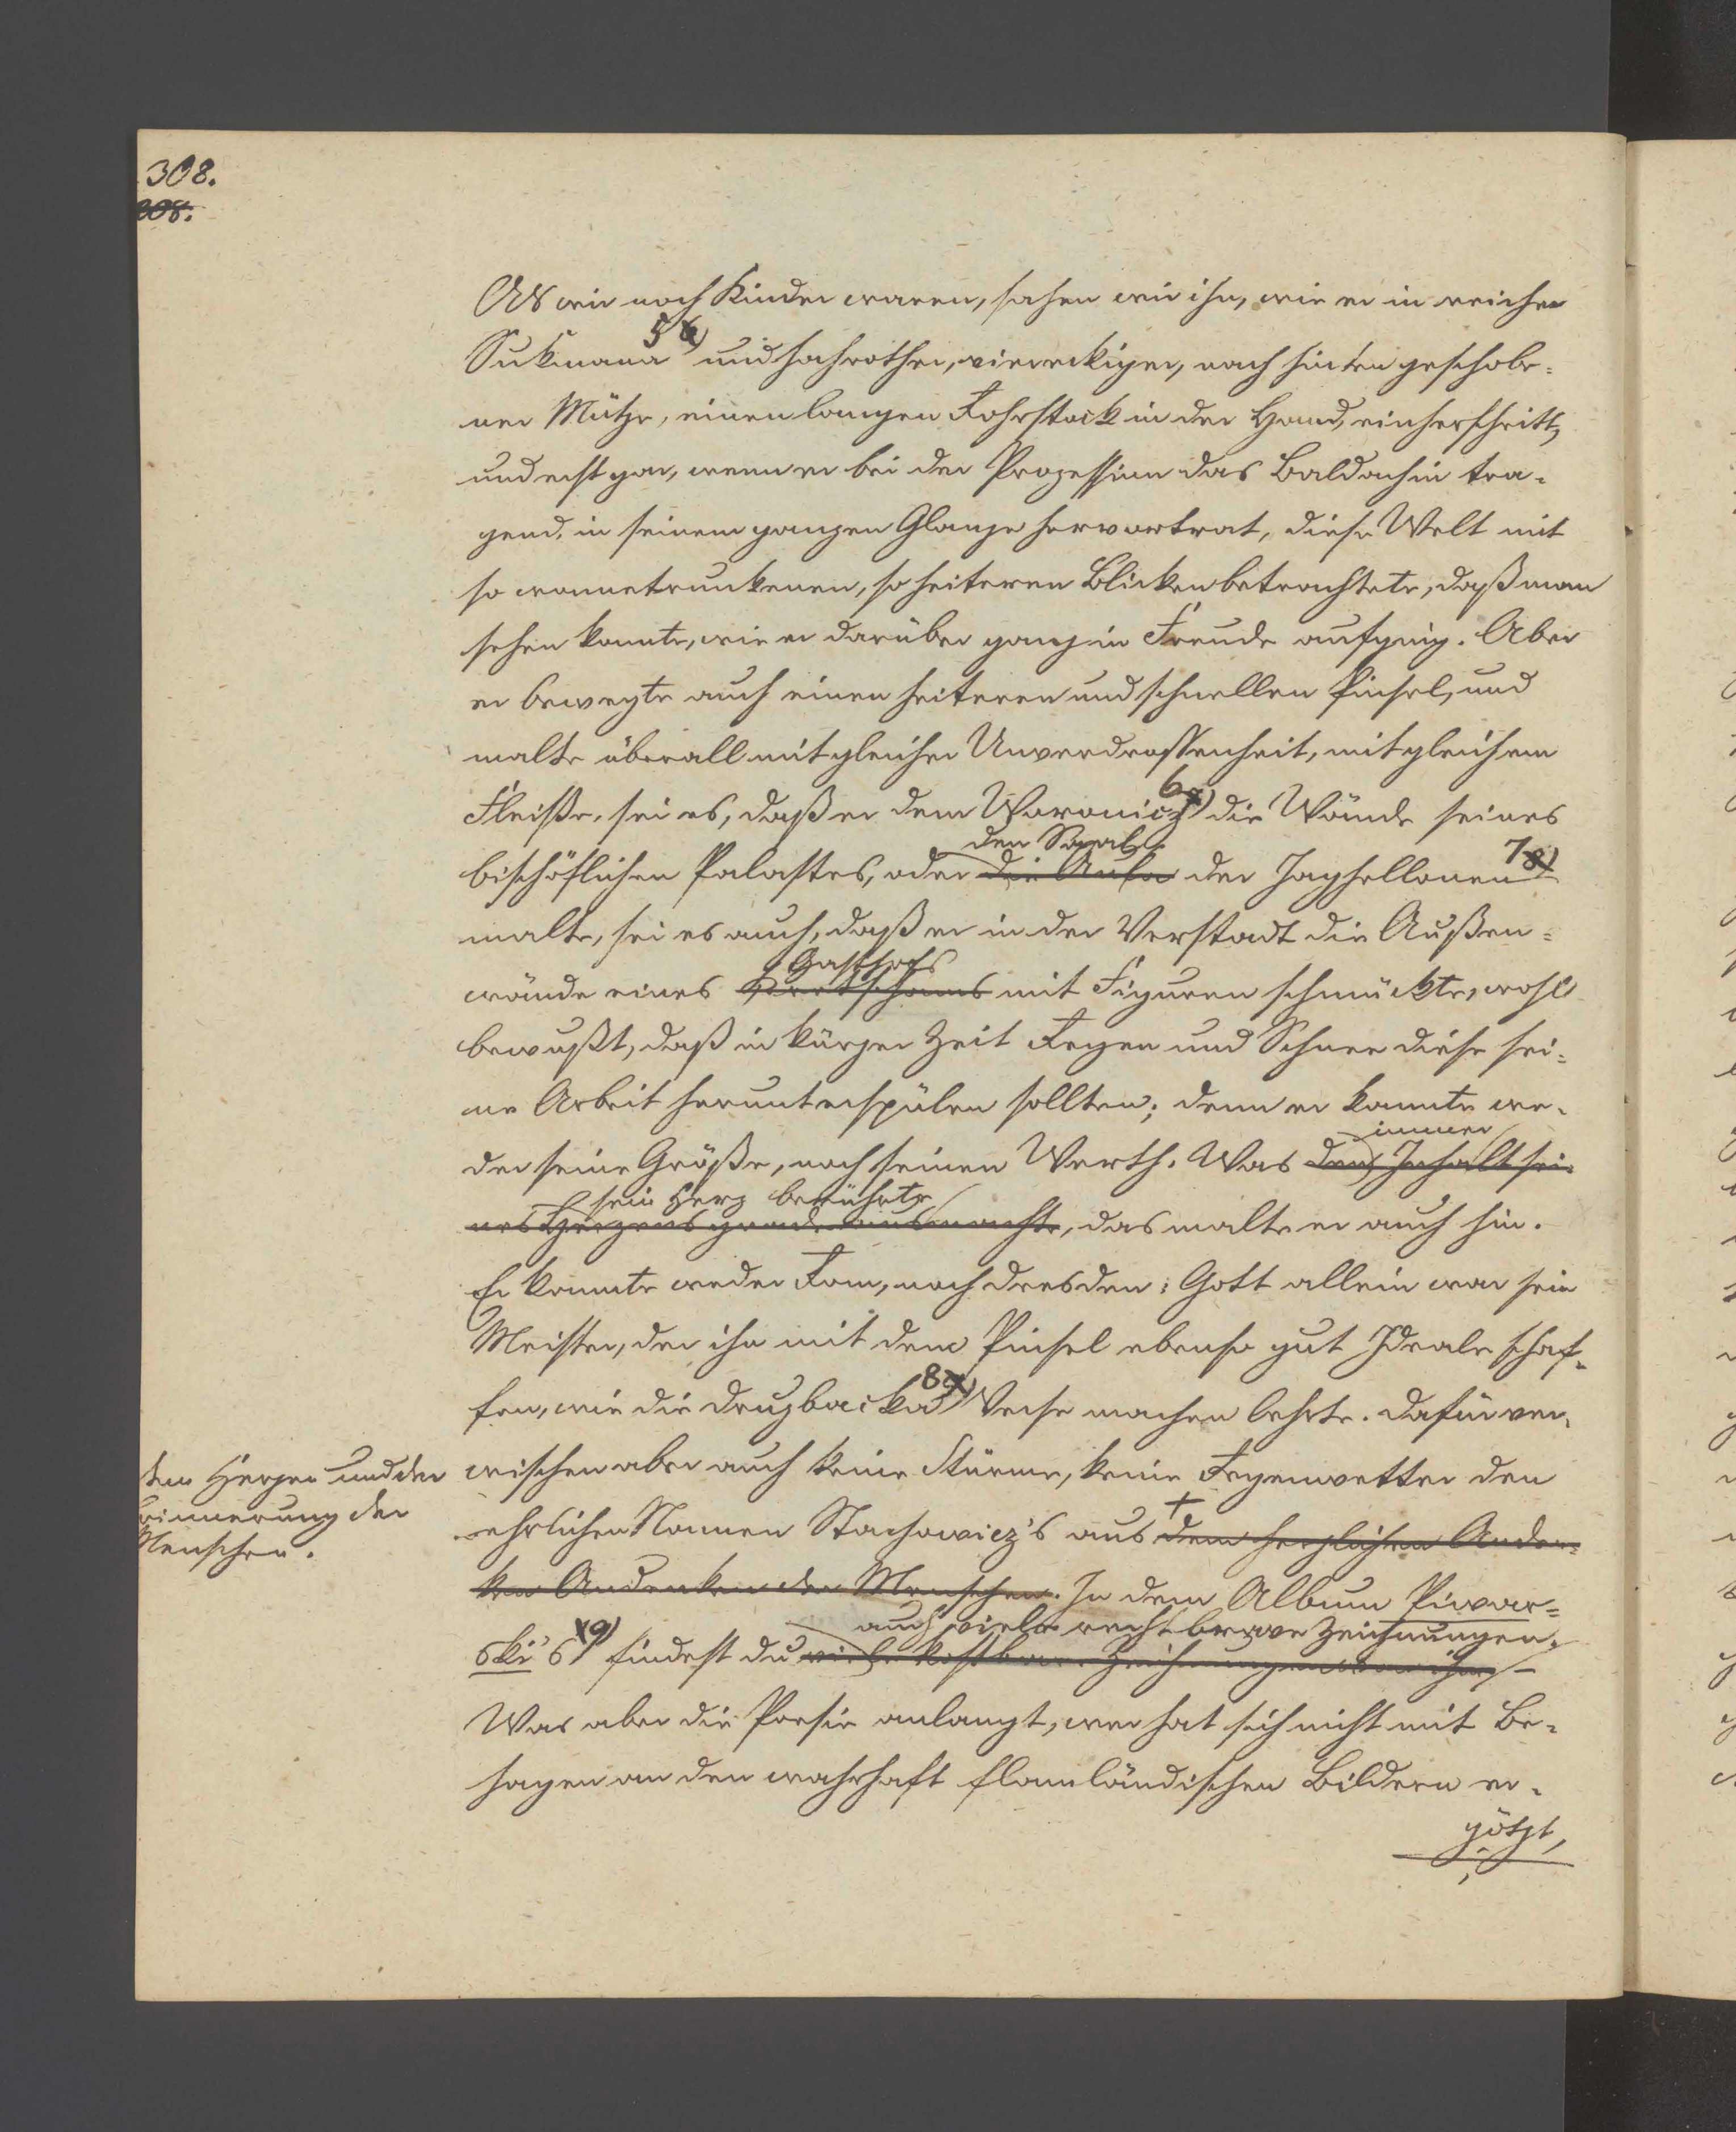 308.
308.
Als wir noch Kinder waren, sahen wir ihn, wie er in reicher
Sukmana 5 6) und hochrother, viereckiger, nach hinten geschobe-
ner Mütze, einen langen Rohrstock in der Hand, einherschritt,
und erst gar, wenn er bei der Prozession das Baldachin tra-
gend, in seinem ganzen Glanze hervortrat, diese Welt mit
so wonnetrunkenen, so heiteren Blicken betrachtete, daß man
sehen konnte, wie er darüber ganz in Freude aufging. Aber
er bewegte auch einen heiteren und schnellen Pinsel, und
malte überall mit gleicher Unverdrossenheit, mit gleichem
Fleiße, sei es, daß er dem Woronicz 6 7) die Wände seines
den Saal
bischöflichen Palastes, oder die Aula der Jaghellonen 7 8)
malte, sei es auch, daß er in der Vorstadt die Außen-
Gasthofs
wände eines Kretschams mit Figuren schmückte, wohl
bewußt, daß in kurzer Zeit Regen und Schnee diese sei-
ne Arbeit herunterspülen sollten; denn er kannte we-
immer
der seine Größe, noch seinen Werth. Was den Inhalt sei-
sein Herz berührte
nes Herzens grade ausmachte, das malte er auch hin.
Er kannte weder Rom, noch Dresden; Gott allein war sein
Meister, der ihn mit dem Pinsel ebenso gut Ideale schaf-
fen, wie die Druzbacka 8 9) Verse machen lehrte. Dafür ver-
wischen aber auch keine Stürme, keine Regenwetter den
ehrlichen Namen Stachowicz's aus + dem herzlichen Anden-
ken Andenken der Menschen. In dem Album Piwar-
auch viele recht brave Zeichnungen.
ski's 9) findest du viele kostbare Zeichnungen von ihm. –
Was aber die Poesie anlangt, wer hat sich nicht mit Be-
hagen an den wahrhaft flamländischen Bildern er-
götzt,
dem Herzen und der
Erinnerung der
Menschen.